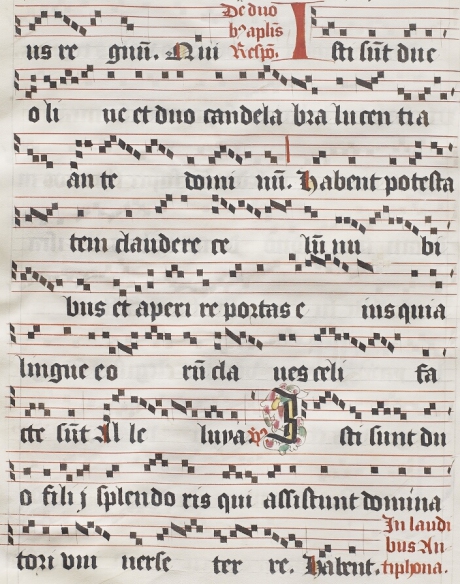 De duo
bꝰ aplīs
us re gnū. Qui Respō. Isti sūt due
oli ue et duo candela bra lucen tia
an te domi nū. Habent potesta
tem claudere ce lū nu bi
bus et aperi re portas e ius quia
lingue eo rū cla ues celi fa
cte sūt Al le luya ℣ Isti sunt du
o filij splendo ris qui assistunt domina
tori vni uerse ter re. Habent.
In laudi
bus An
tiphona.